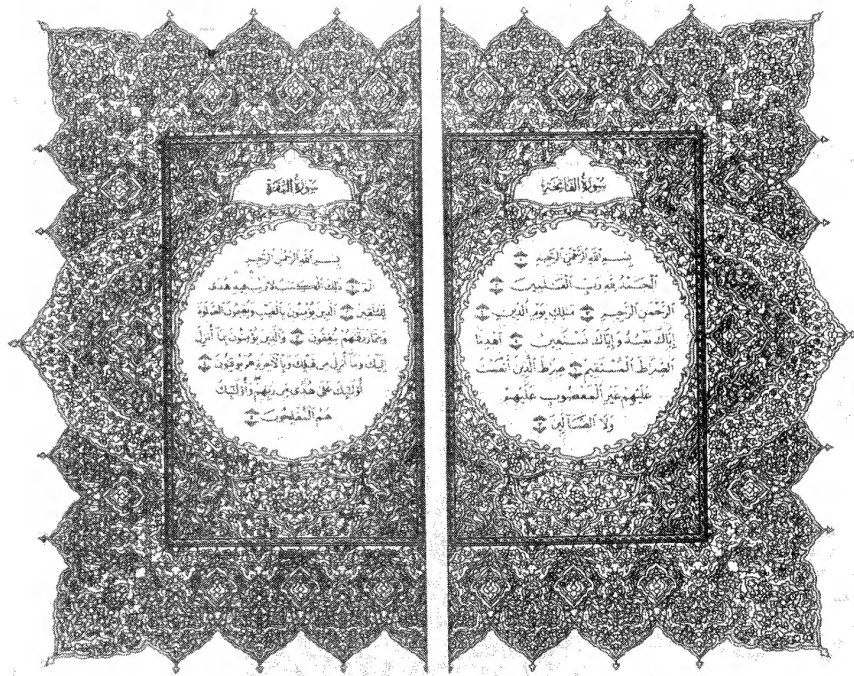 سُورَةُ الفَاتِحَة
بِسْمِ اللَّهِ الرَّحْمَٰنِ الرَّحِيمِ
الْحَمْدُ لِلَّهِ رَبِّ الْعَٰلَمِينَ
الرَّحْمَٰنِ الرَّحِيمِ مَٰلِكِ يَوْمِ الدِّينِ
إِيَّاكَ نَعْبُدُ وَإِيَّاكَ نَسْتَعِينُ اهْدِنَا
الصِّرَٰطَ الْمُسْتَقِيمَ صِرَٰطَ الَّذِينَ أَنْعَمْتَ
عَلَيْهِمْ غَيْرِ الْمَغْضُوبِ عَلَيْهِمْ
وَلَا الضَّالِّينَ
سُورَةُ البَقَرَة
بِسْمِ اللَّهِ الرَّحْمَٰنِ الرَّحِيمِ
الم ذَٰلِكَ الْكِتَٰبُ لَا رَيْبَ فِيهِ هُدًى
لِّلْمُتَّقِينَ الَّذِينَ يُؤْمِنُونَ بِالْغَيْبِ وَيُقِيمُونَ الصَّلَوٰةَ
وَمِمَّا رَزَقْنَٰهُمْ يُنفِقُونَ وَالَّذِينَ يُؤْمِنُونَ بِمَا أُنزِلَ
إِلَيْكَ وَمَا أُنزِلَ مِن قَبْلِكَ وَبِالْآخِرَةِ هُمْ يُوقِنُونَ
أُوْلَٰئِكَ عَلَىٰ هُدًى مِّن رَّبِّهِمْ وَأُوْلَٰئِكَ
هُمُ الْمُفْلِحُونَ